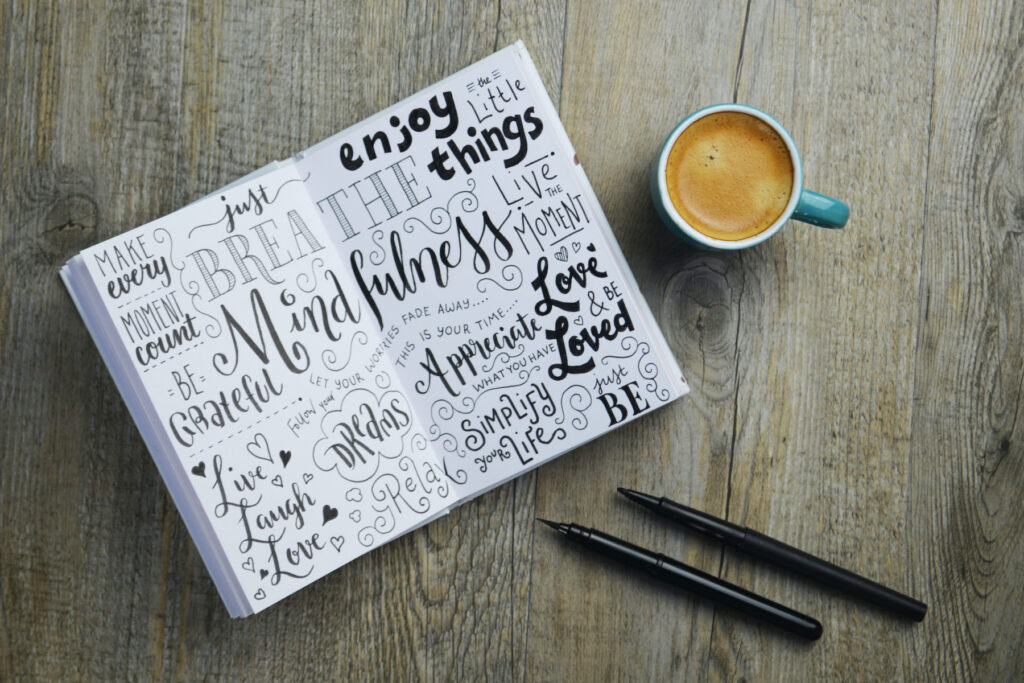 MAKE
every
MOMENT
count
just
BREATHE
Mindfulness
BE
Grateful
LET YOUR WORRIES FADE AWAY....
THIS IS YOUR TIME...
Follow your
DReams
Live
Laugh
Love
Relax
enjoy
the
Little
things
LIVE
THE
MOMENT
Love
& BE
Loved
Appreciate
WHAT YOU HAVE
SIMPLIFY
your Life
just
BE